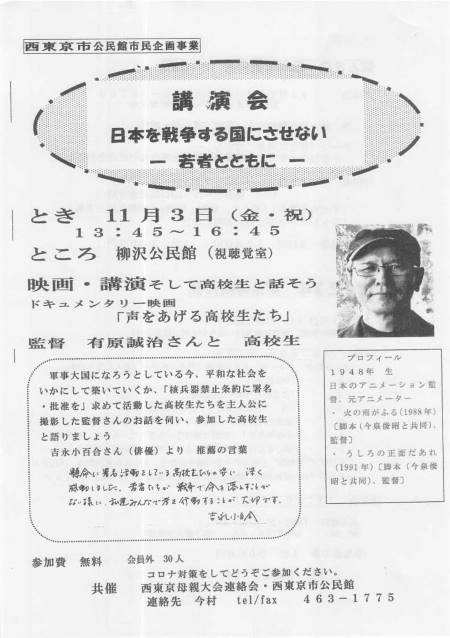 西東京市公民館市民企画事業
講演会
日本を戦争する国にさせない
― 若者とともに ―
とき 11月3日（金・祝）
13：45～16：45
ところ 柳沢公民館（視聴覚室）
映画・講演そして高校生と話そう
ドキュメンタリー映画
「声をあげる高校生たち」
監督 有原誠治さんと 高校生
軍事大国になろうとしている今、平和な社会を
いかにして築いていくか、「核兵器禁止条約に署名
・批准を」求めて活動した高校生たちを主人公に
撮影した監督さんのお話を伺い、参加した高校生
と語りましょう
吉永小百合さん（俳優）より 推薦の言葉
懸命に署名活動をしている高校生たちの姿に 深く
感動しました。若者たちが 戦争で命を落とすことが
ない様に、私達みんなで考え行動することが大切です。
吉永小百合
プロフィール
1948年 生
日本のアニメーション監
督、元アニメーター
・火の雨がふる（1988年）
［脚本（今泉俊昭と共同）、
監督］
・うしろの正面だあれ
（1991年）［脚本（今泉俊
昭と共同）、監督］
参加費 無料 会員外 30人
コロナ対策をしてどうぞご参加ください。
共催 西東京母親大会連絡会・西東京市公民館
連絡先 今村 tel/fax 463-1775